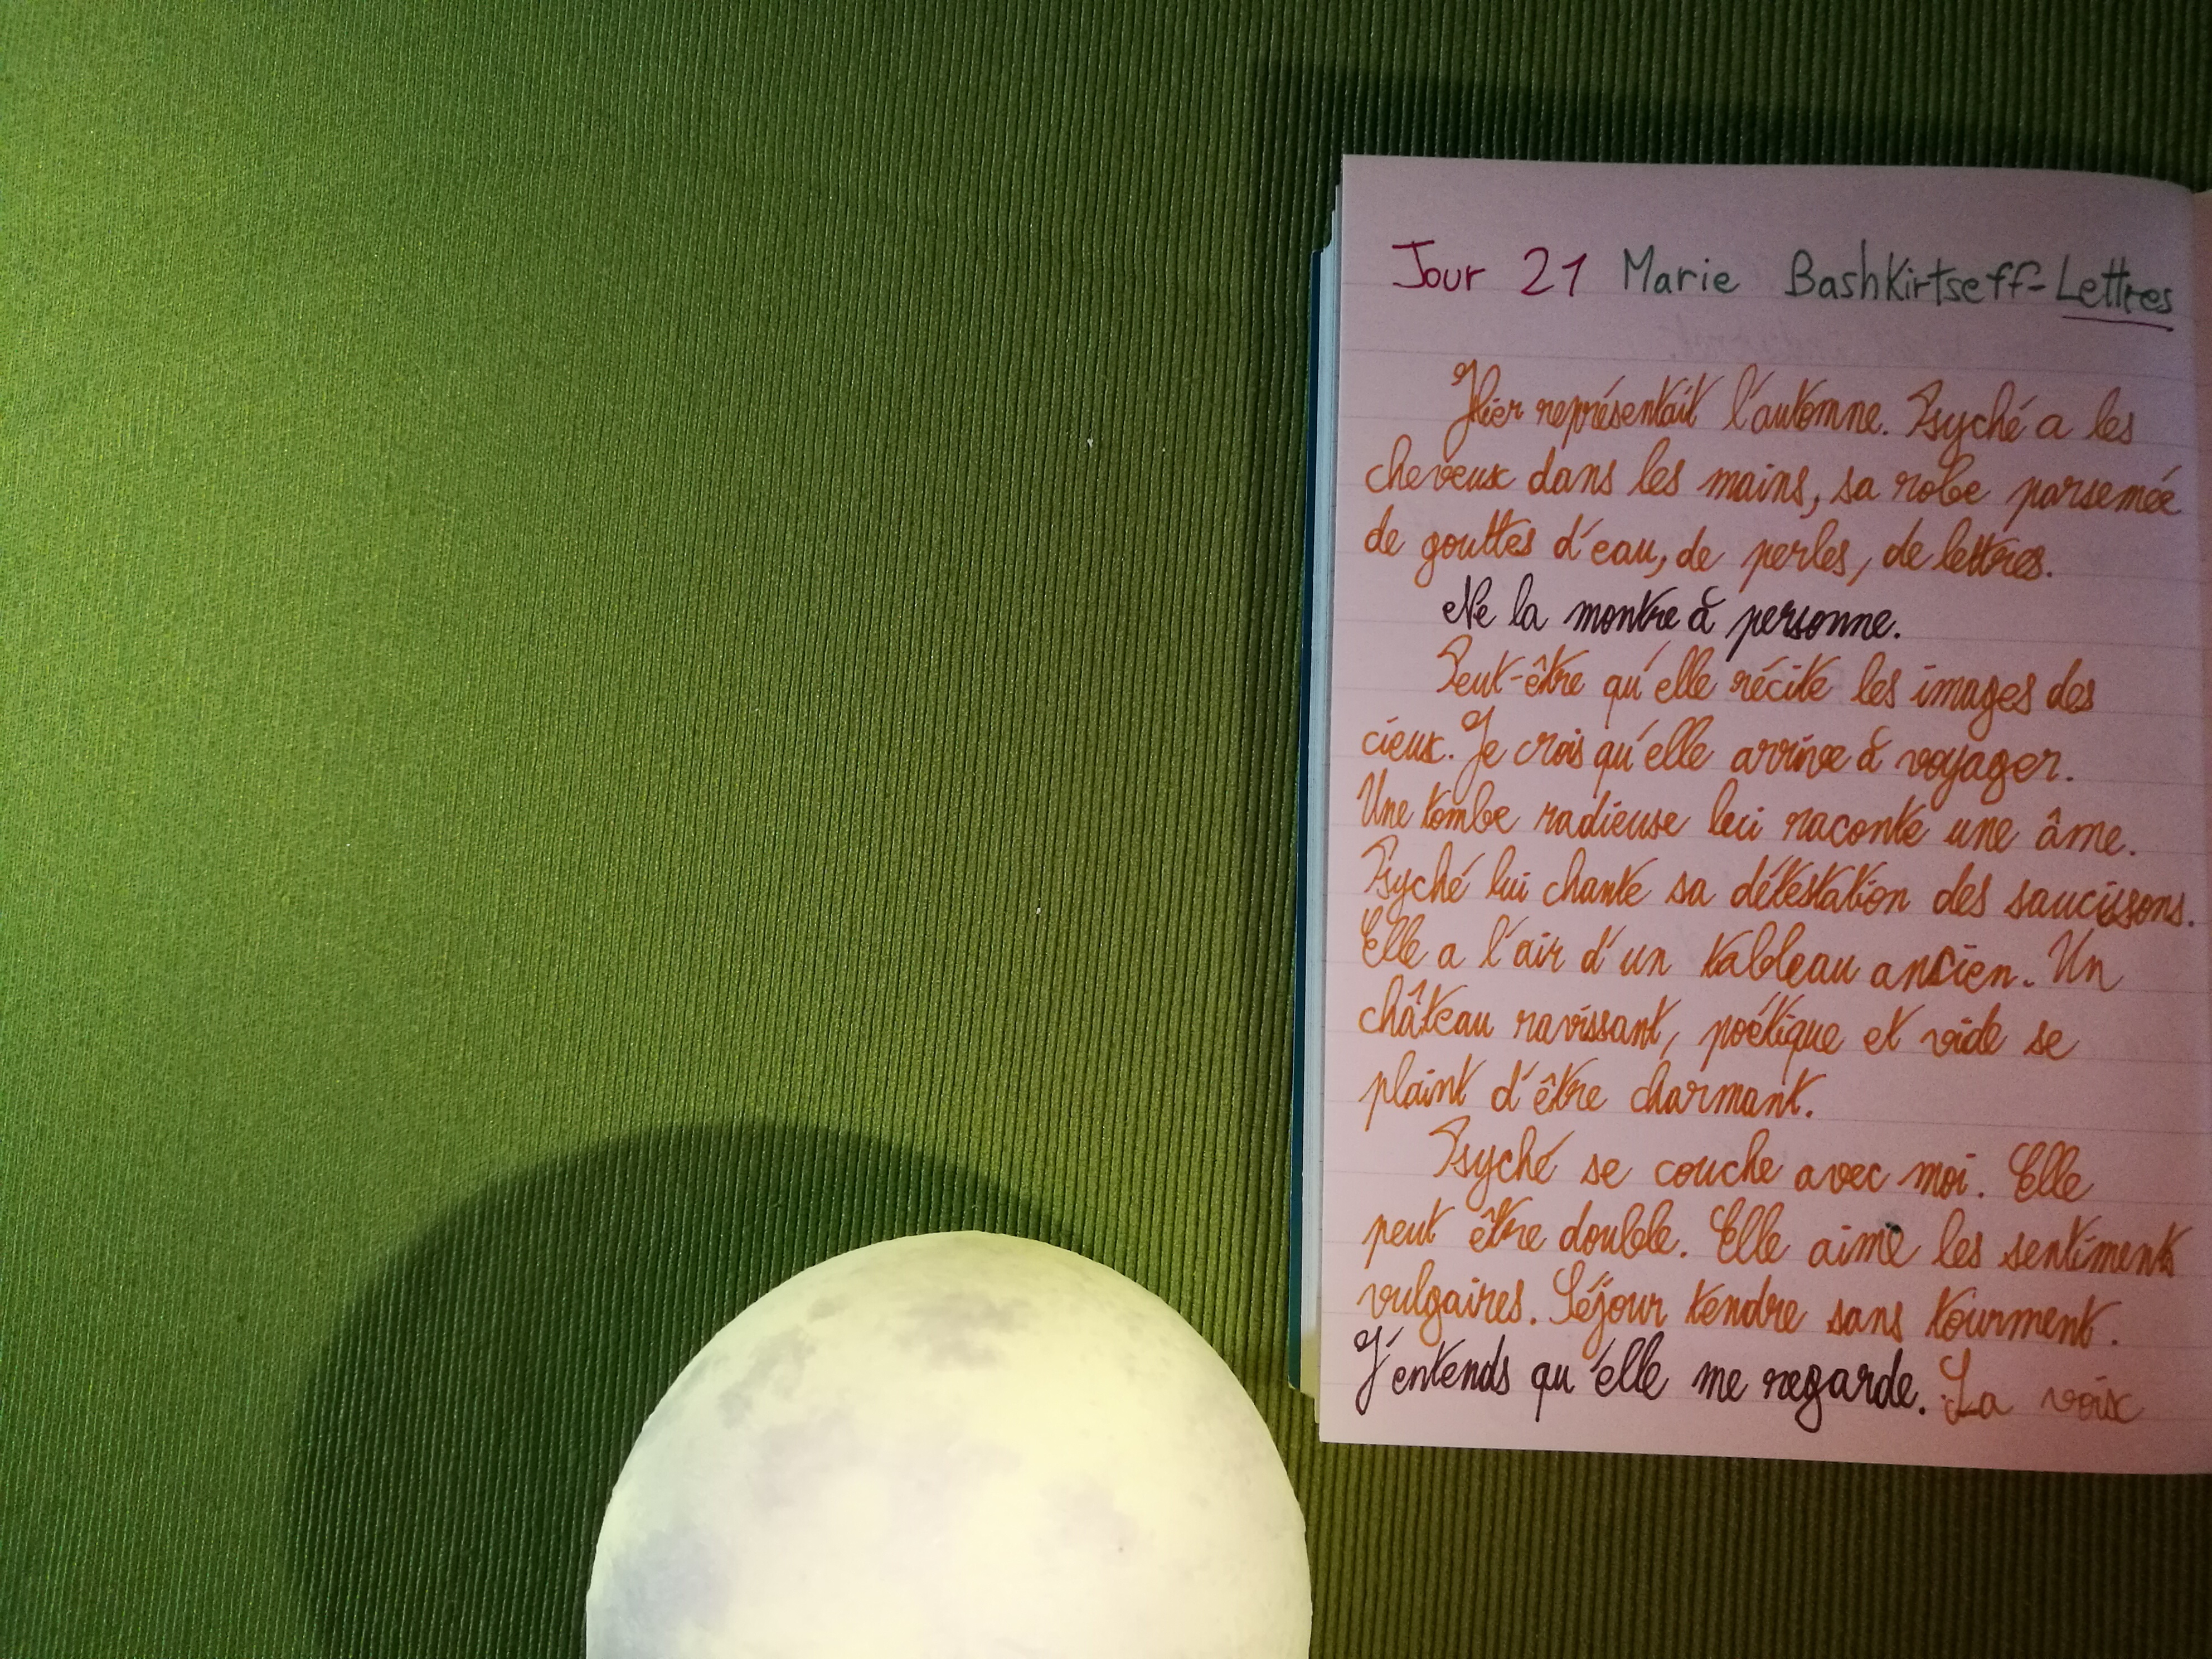 Jour 21 Marie Bashkirtseff-Lettres
Hier représentait l'automne. Psyché a les
cheveux dans les mains, sa robe parsemée
de gouttes d'eau, de perles, de lettres.
Ne la montre à personne.
Peut-être qu'elle récite les images des
cieux. Je crois qu'elle arrive à voyager.
Une tombe radieuse lui raconte une âme.
Psyché lui chante sa détestation des saucissons.
Elle a l'air d'un tableau ancien. Un
château ravissant, poétique et vide se
plaint d'être charmant.
Psyché se couche avec moi. Elle
peut être double. Elle aime les sentiments
vulgaires. Séjour tendre sans tourment.
J'entends qu'elle me regarde. La voix